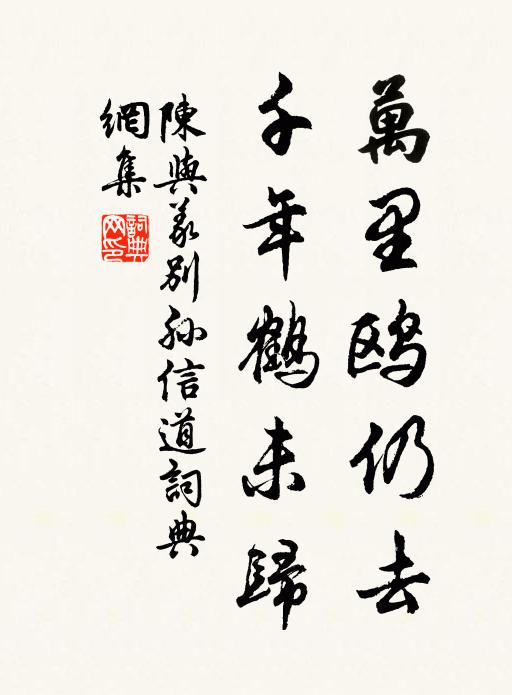 萬里鸥仍去
千年鶴未歸
陳與義别孙信道詞典
網集
詞典
网印